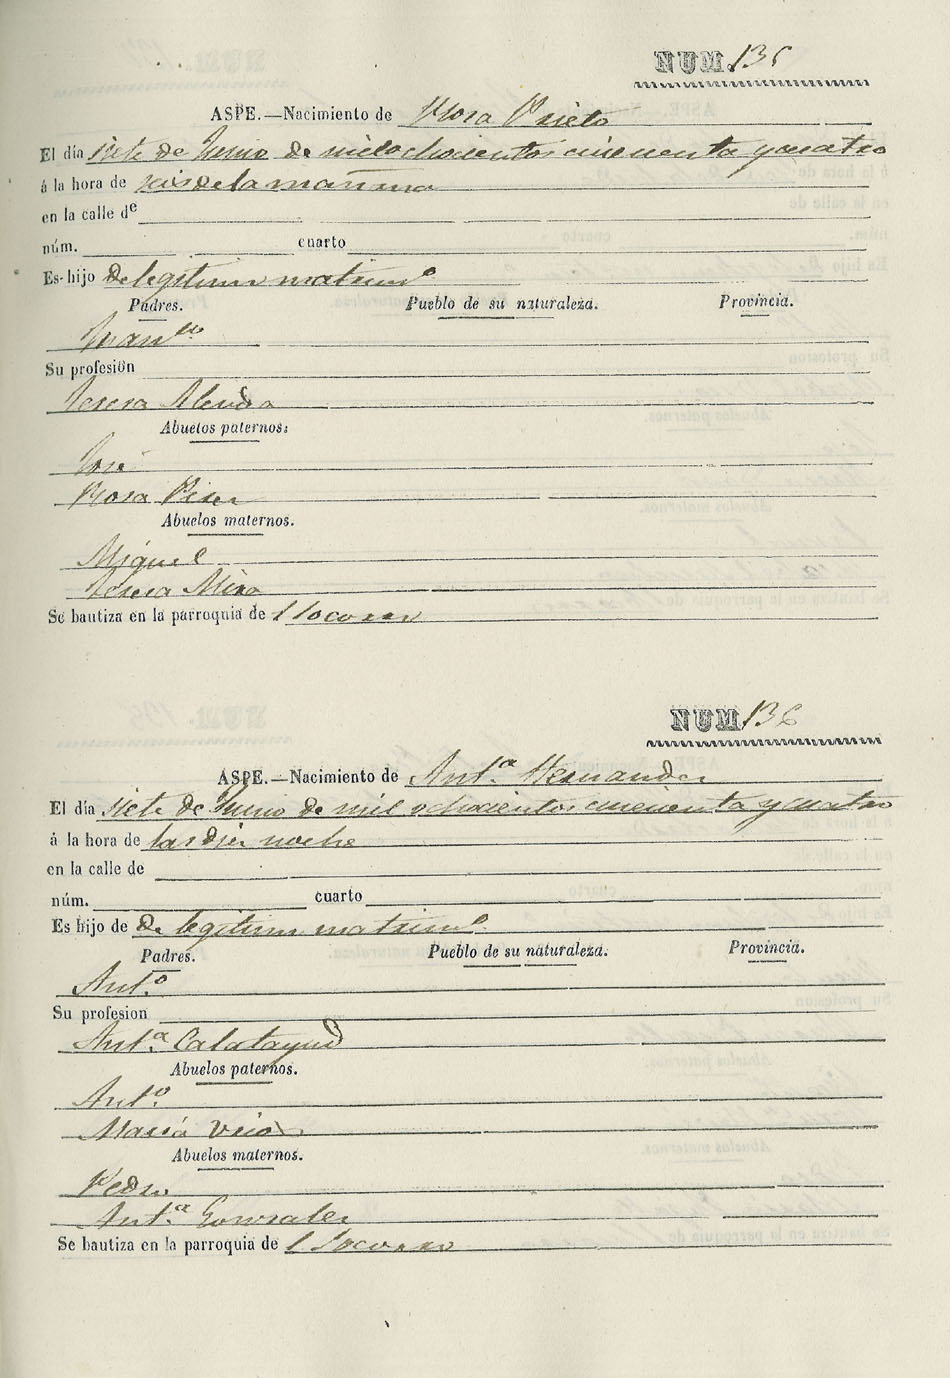 NUM. 135
ASPE.—Nacimiento de Rosa Prieto
El día siete de Junio de mil ochocientos cincuenta y cuatro
á la hora de seis de la mañana
en la calle de
núm. cuarto
Es hijo de legitimo matrimº
Padres. Pueblo de su naturaleza. Provincia.
Manuˡ
Su profesión
Teresa Alenda
Abuelos paternos:
José
Rosa
Abuelos maternos.
Miguel
Teresa Mira
Se bautiza en la parroquia de l Socorro
NUM. 136
ASPE.—Nacimiento de Antᵃ Hernandez
El día siete de Junio de mil ochocientos cincuenta y cuatro
á la hora de las diez noche
en la calle de
núm. cuarto
Es hijo de de legitimo matrimº
Padres. Pueblo de su naturaleza. Provincia.
Antº
Su profesion
Antᵃ Calatayud
Abuelos paternos.
Antº
María
Abuelos maternos.
Pedro
Antᵃ Gonzalez
Se bautiza en la parroquia de l Socorro